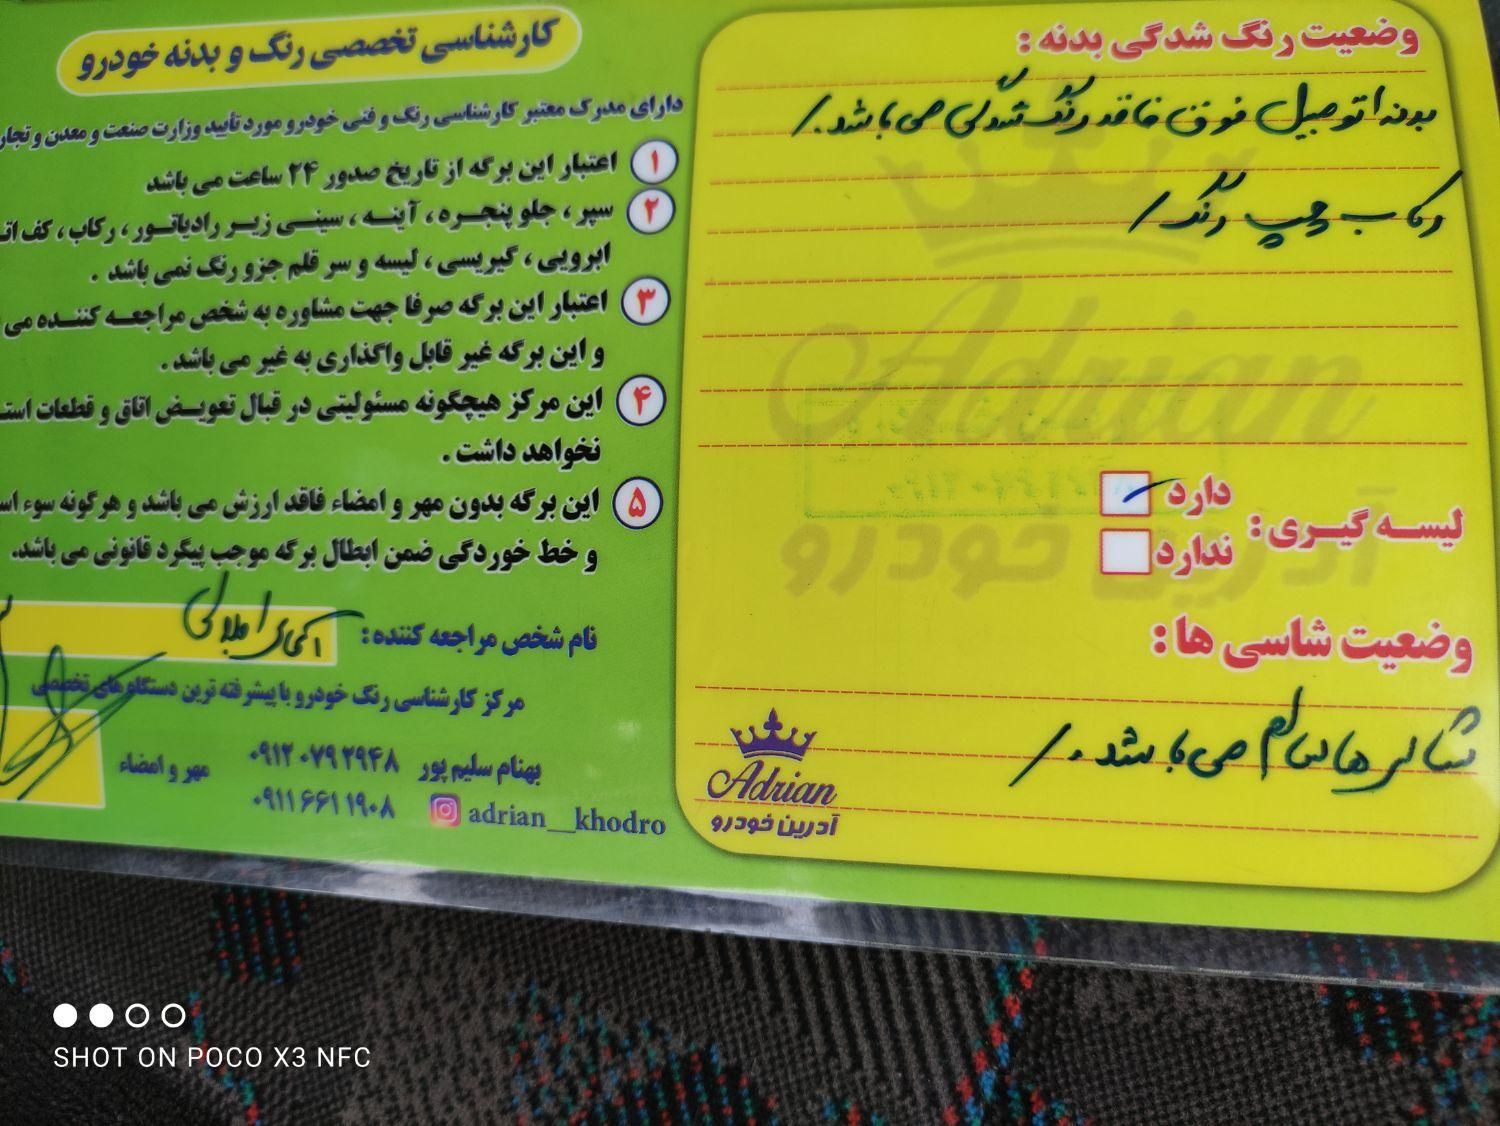 وضعیت رنگ شدگی بدنه :
بدنه اتومبیل فوق فاقد رنگ شدگی می باشد ./
رکاب چپ رنگ /
لیسه گیری :
دارد
ندارد
وضعیت شاسی ها :
شاسی ها سالم می باشد ./
Adrian
آدرین خودرو
Adrian
آدرین خودرو
کارشناسی تخصصی رنگ و بدنه خودرو
دارای مدرک معتبر کارشناسی رنگ و فنی خودرو مورد تأیید وزارت صنعت و معدن و تجار
۱ اعتبار این برگه از تاریخ صدور ۲۴ ساعت می باشد
۲ سپر ، جلو پنجره ، آینه ، سینی زیر رادیاتور ، رکاب ، کف
ابرویی ، گیریسی ، لیسه و سر قلم جزو رنگ نمی باشد .
۳ اعتبار این برگه صرفا جهت مشاوره به شخص مراجعه کننده می
و این برگه غیر قابل واگذاری به غیر می باشد .
۴ این مرکز هیچگونه مسئولیتی در قبال تعویض اتاق و قطعات
نخواهد داشت .
۵ این برگه بدون مهر و امضاء فاقد ارزش می باشد و هرگونه سوء
و خط خوردگی ضمن ابطال برگه موجب پیگرد قانونی می باشد.
نام شخص مراجعه کننده : آقای
مرکز کارشناسی رنگ خودرو با پیشرفته ترین دستگاه های تخصصی
بهنام سلیم پور ۰۹۱۲۰۷۹۲۹۴۸
۰۹۱۱۶۶۱۱۹۰۸
مهر و امضاء
adrian__khodro
SHOT ON POCO X3 NFC